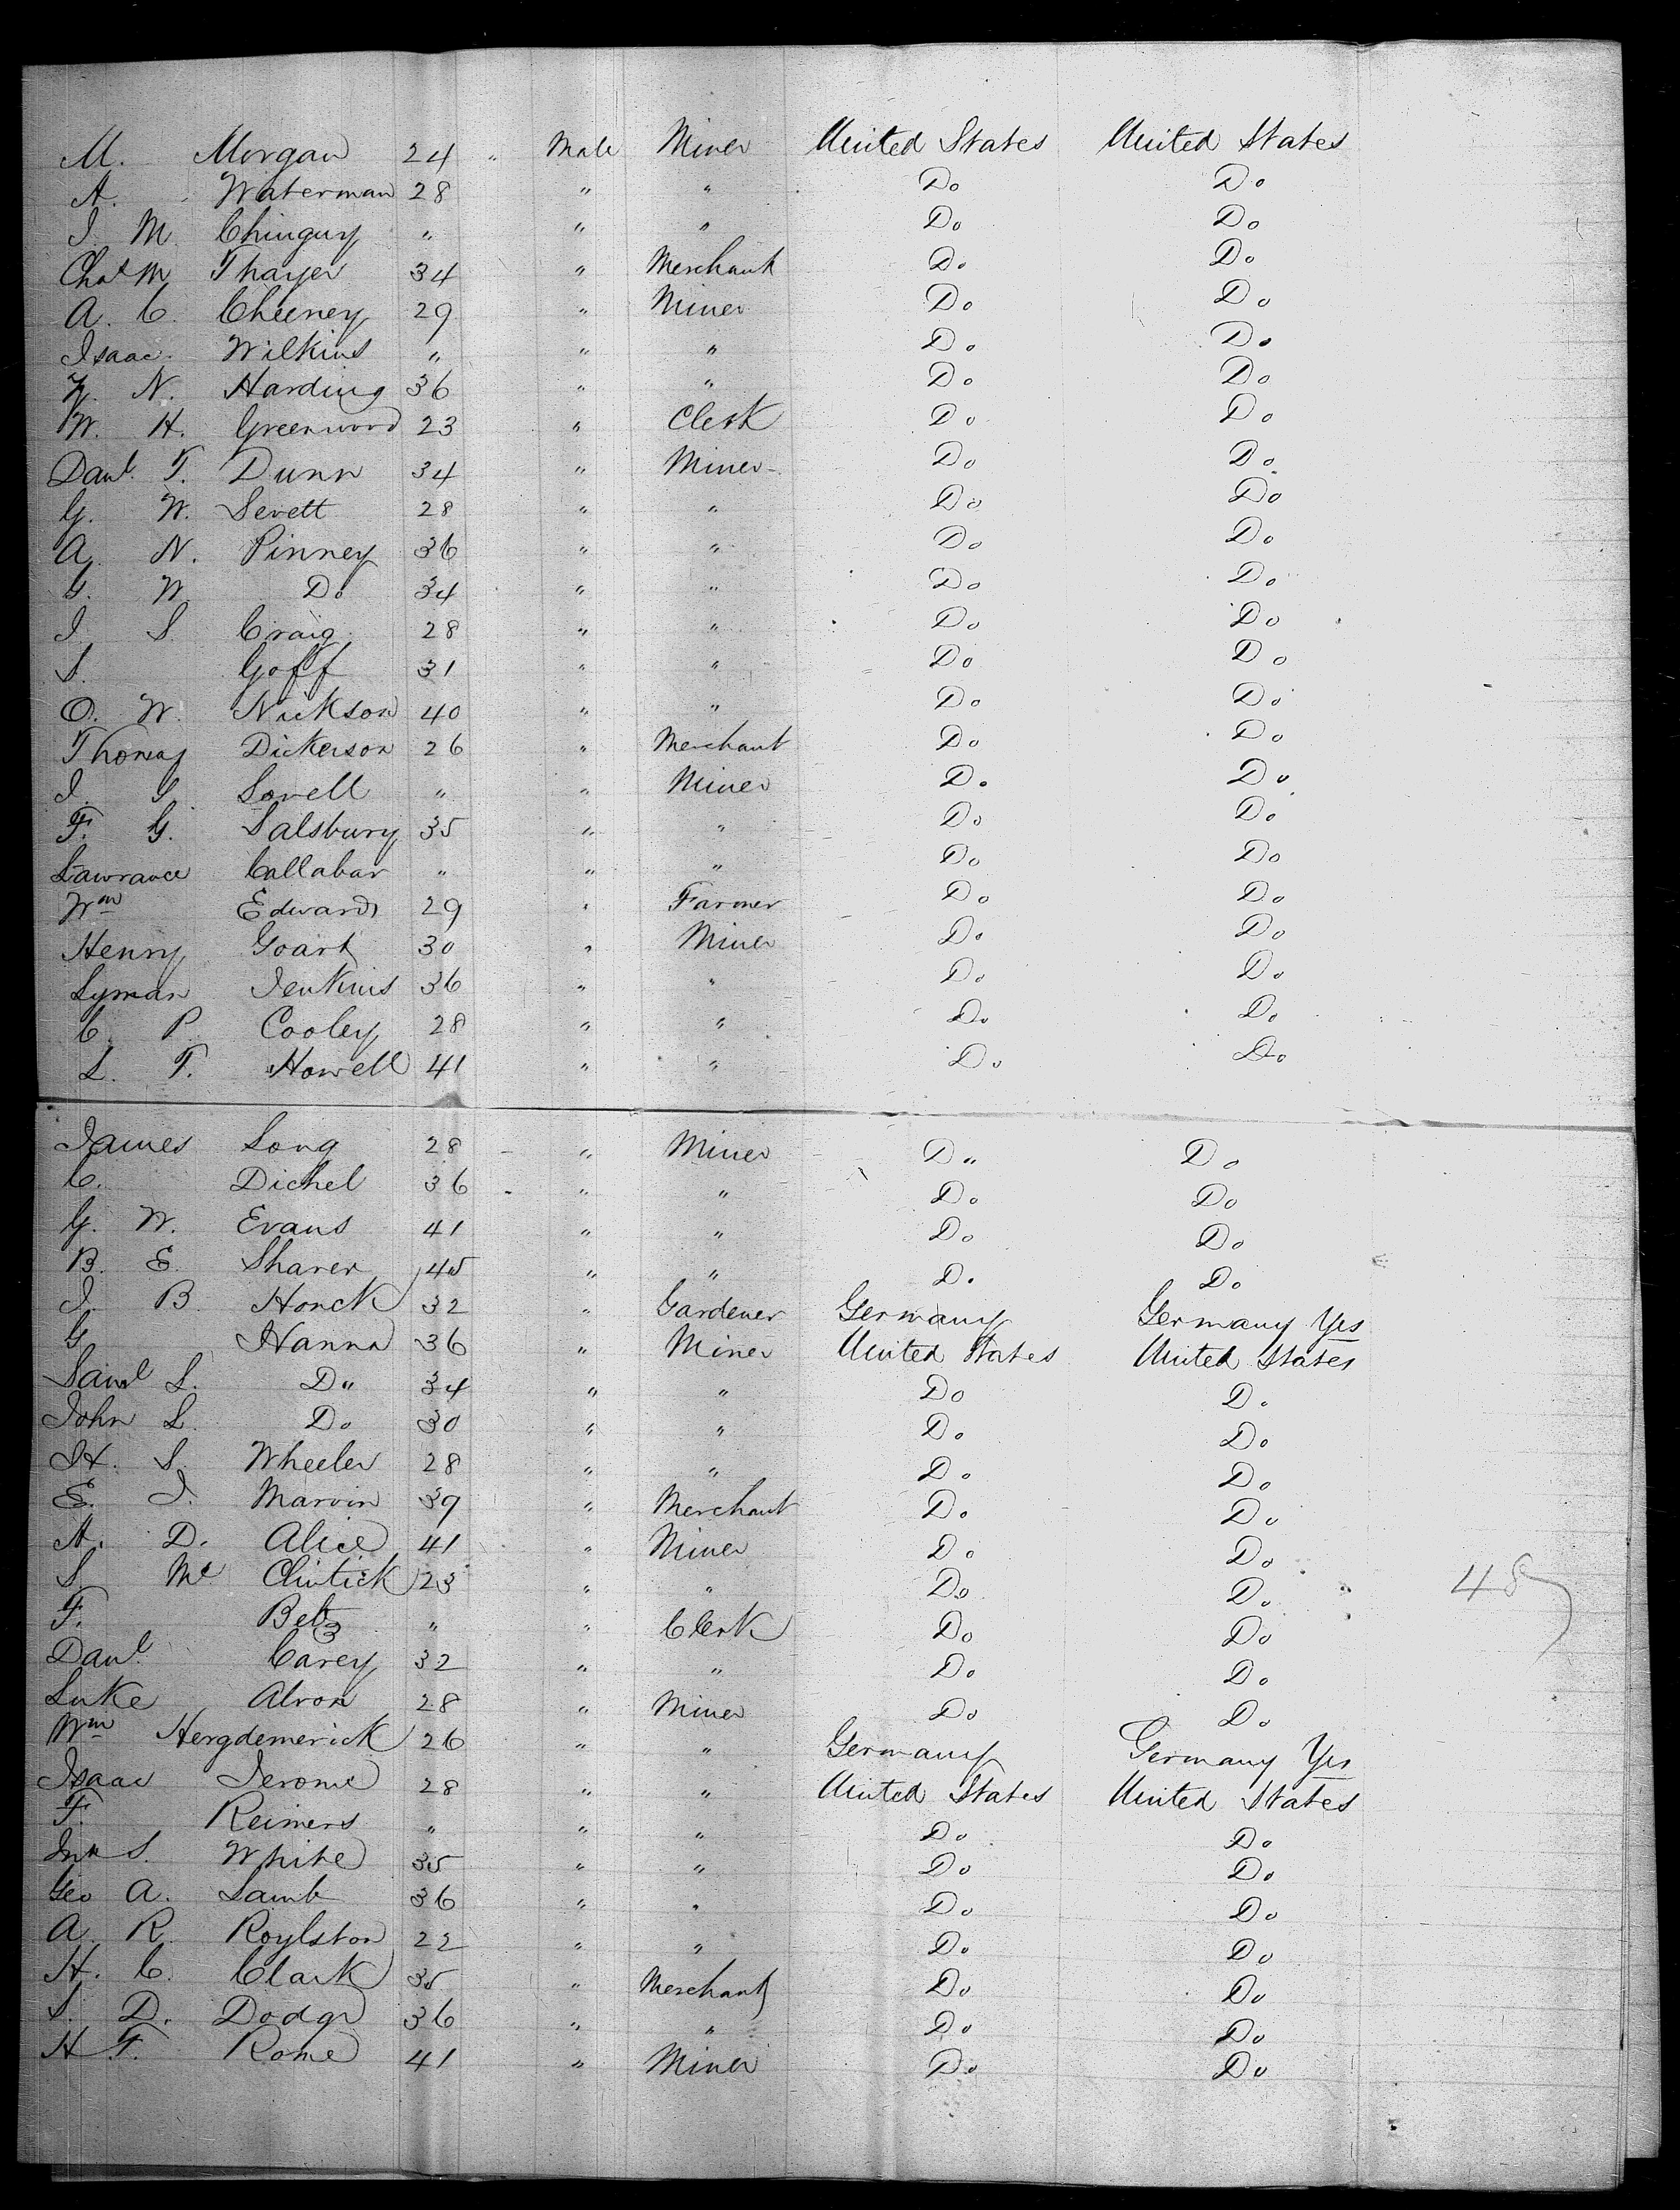 M. Morgan 24 " Male Miner United States United States
A. Waterman 28 " " Do Do
J. M. Chinguy " " " Do Do
Chas M Thayer 34 " Merchant Do Do
A. C. Cheeney 29 " Miner Do Do
Isaac Wilkins " " " Do Do
Z. N. Harding 36 " " Do Do
W. H. Greenwood 23 " Clerk Do Do
Danl. T. Dunn 34 " Miner Do Do
G. W. Sevett 28 " " Do Do
A. N. Pinney 36 " " Do Do
G. W. Do 34 " " Do Do
J. S. Craig 28 " " Do Do
S. Goff 31 " " Do Do
O. W. Nickson 40 " " Do Do
Thomas Dickerson 26 " Merchant Do Do
J. S. Sovell " " Miner Do Do
F. G. Salsbury 35 " " Do Do
Lawrance Callahan " " " Do Do
Wm Edwards 29 " Farmer Do Do
Henry Goark 30 " Miner Do Do
Lyman Jenkins 36 " " Do Do
C. P. Cooley 28 " " Do Do
L. T. Howell 41 " " Do Do
James Long 28 " Miner Do Do
C. Dichel 36 " " Do Do
G. W. Evans 41 " " Do Do
B. E. Sharer 45 " " Do Do
J. B. Honck 32 " Gardener Germany Germany Yes
G Hanna 36 " Miner United States United States
Saml L. Do 34 " " Do Do
John L. Do 30 " " Do Do
H. S. Wheeler 28 " " Do Do
E. J. Marvin 39 " Merchant Do Do
A. D. Alice 41 " Miner Do Do
S. Mc Clintick 23 " " Do Do
F. Betz " " Clerk Do Do
Danl. Carey 32 " " Do Do
Luke Alron 28 " Miner Do Do
Wm Hergdemerick 26 " " Germany Germany Yes
Isaac Jerome 28 " " United States United States
F. Reimers " " " Do Do
Jno S. White 35 " " Do Do
Geo A. Lamb 36 " " Do Do
A. R. Roylston 22 " " Do Do
H. C. Clark 35 " Merchant Do Do
S. D. Dodge 36 " " Do Do
H. F. Rome 41 " Miner Do Do
48